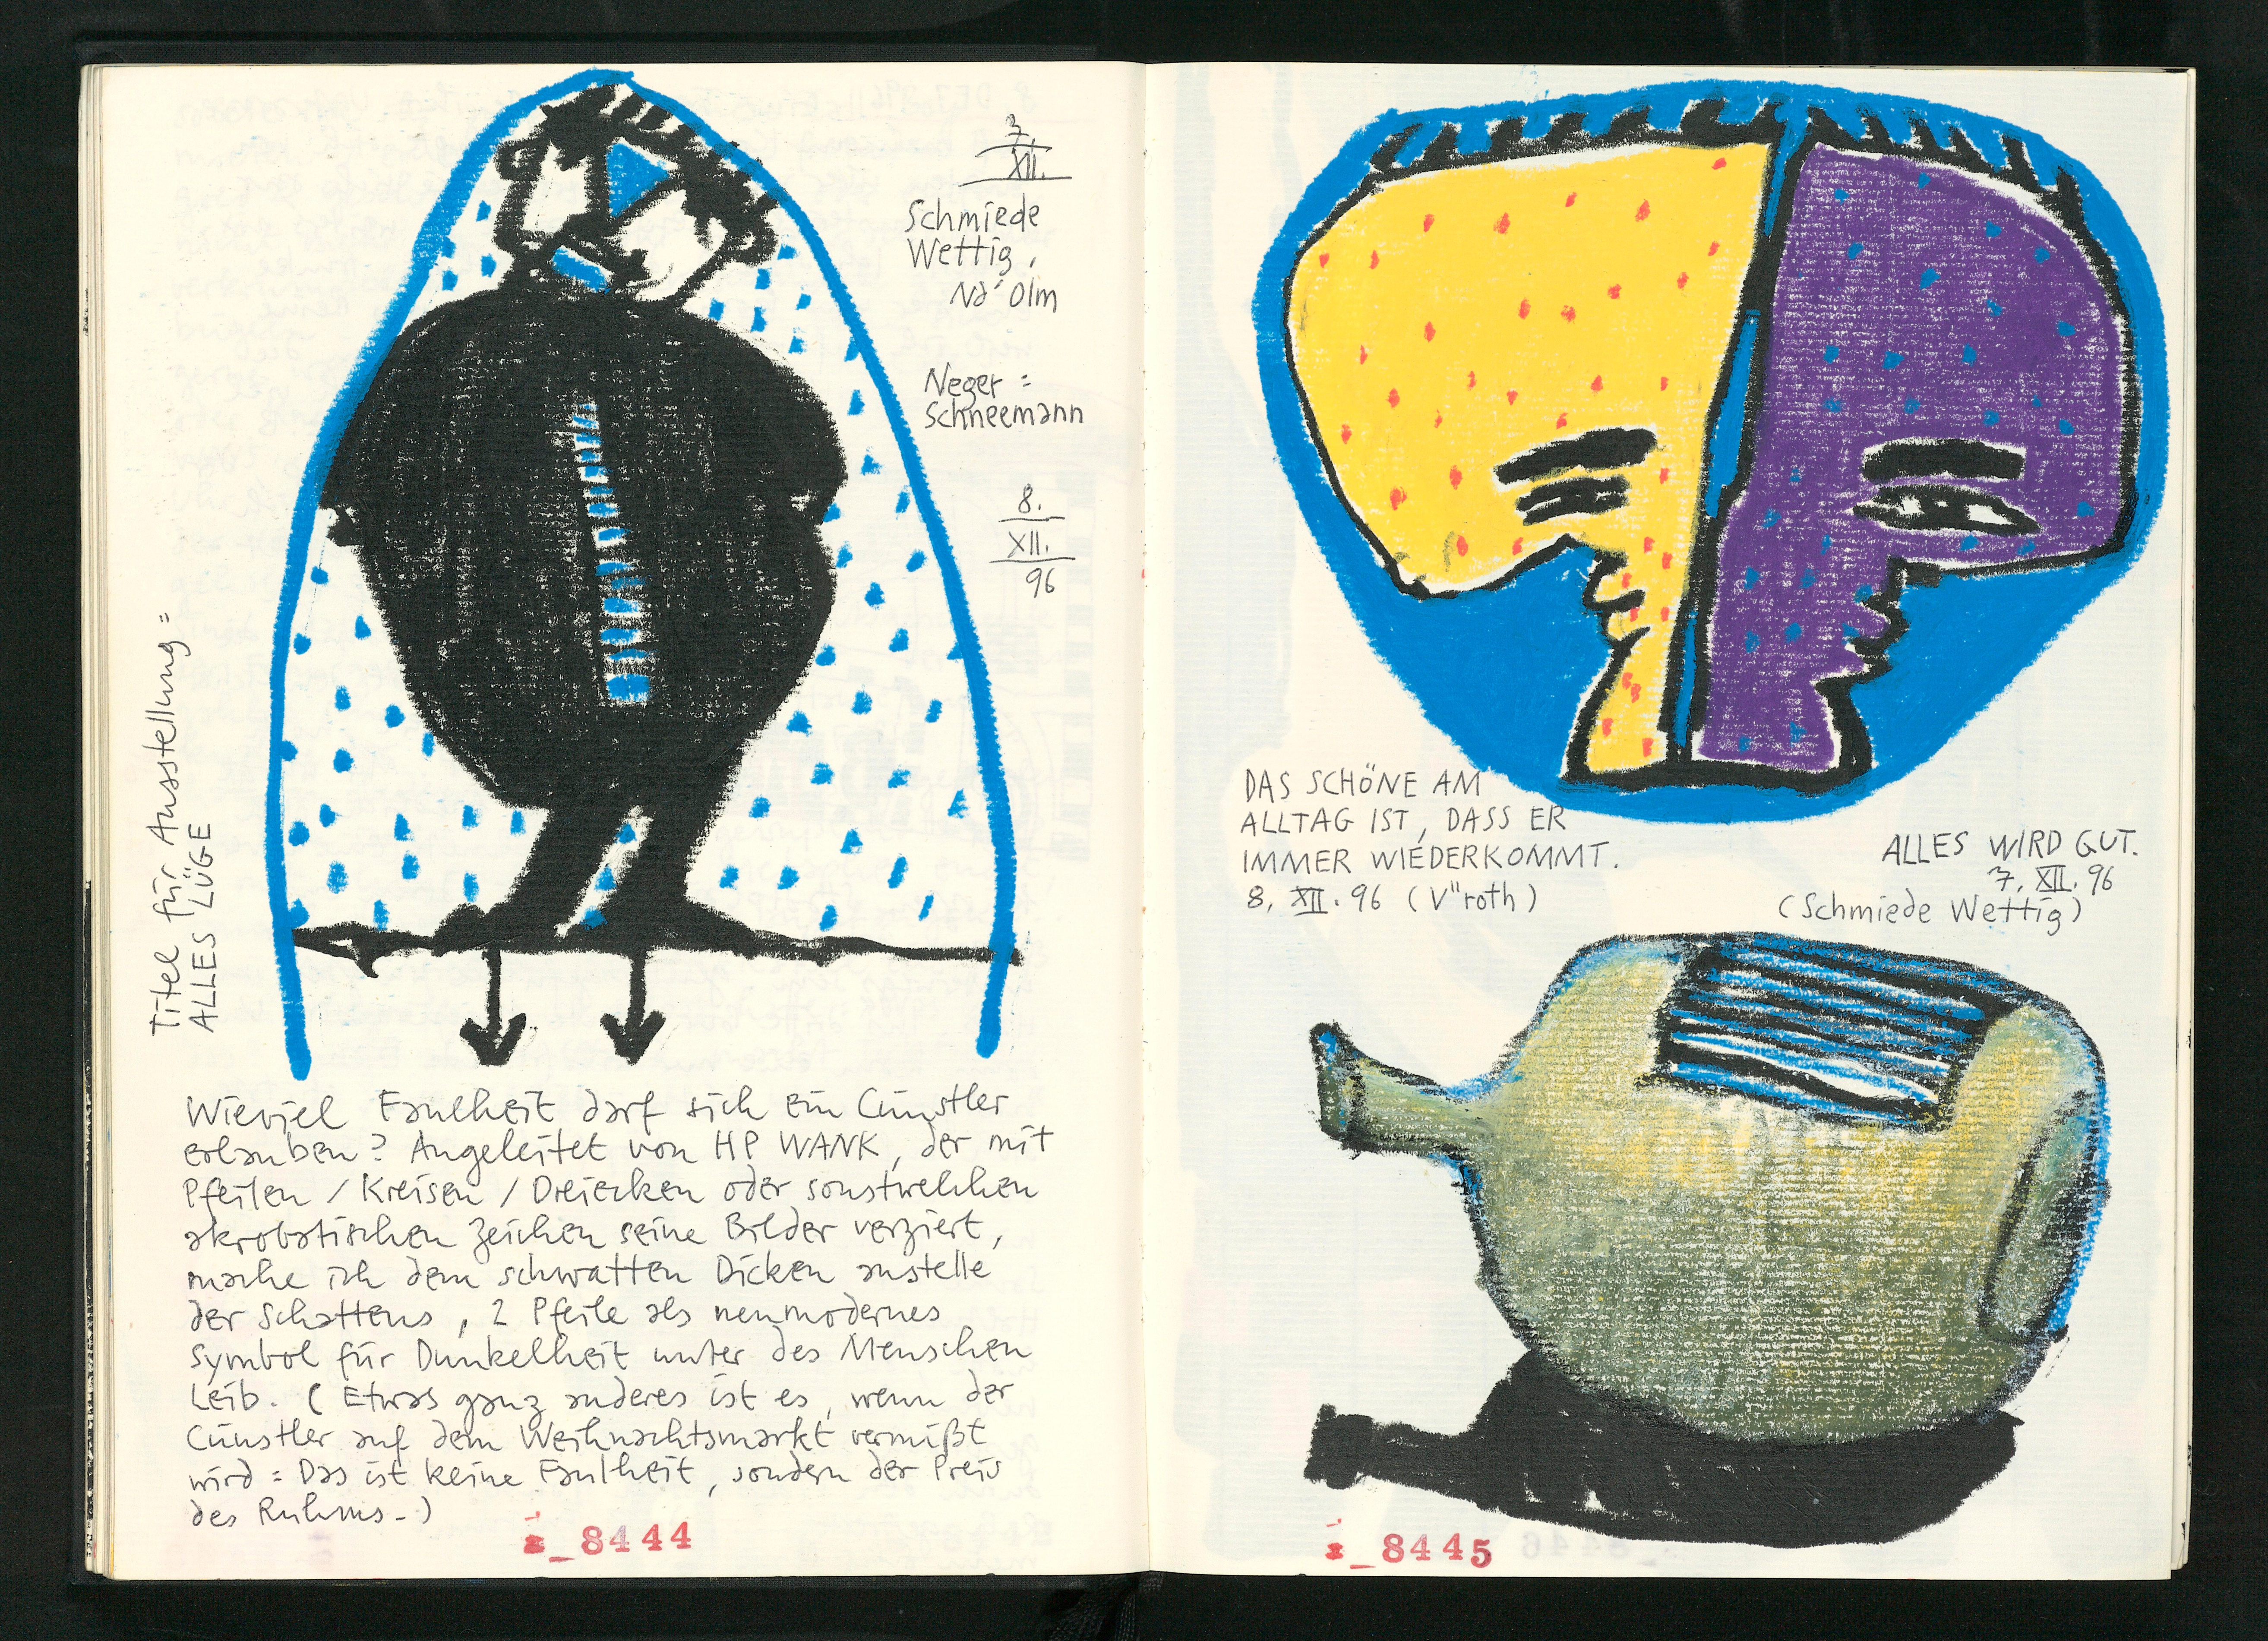 7.
XII.
Schmiede
Wettig,
Nd' Olm
Neger =
Schneemann
8.
XII.
96
Titel für Ausstellung =
ALLES LÜGE
Wieviel Faulheit darf sich ein Cünstler
erlauben? Angeleitet von HP WANK, der mit
Pfeilen / Kreisen / Dreiecken oder sonstwelchen
akrobatischen Zeichen seine Bilder verziert,
mache ich dem schwatten Dicken anstelle
der Schattens, 2 Pfeile als neumodernes
Symbol für Dunkelheit unter des Menschen
Leib. (Etwas ganz anderes ist es, wenn der
Cünstler auf dem Weihnachtsmarkt vermißt
wird = Das ist keine Faulheit, sondern der Preis
des Ruhms-)
_8444
DAS SCHÖNE AM
ALLTAG IST, DASS ER
IMMER WIEDERKOMMT.
8. XII. 96 (V"roth)
ALLES WIRD GUT.
7. XII. 96
(Schmiede Wettig)
_8445